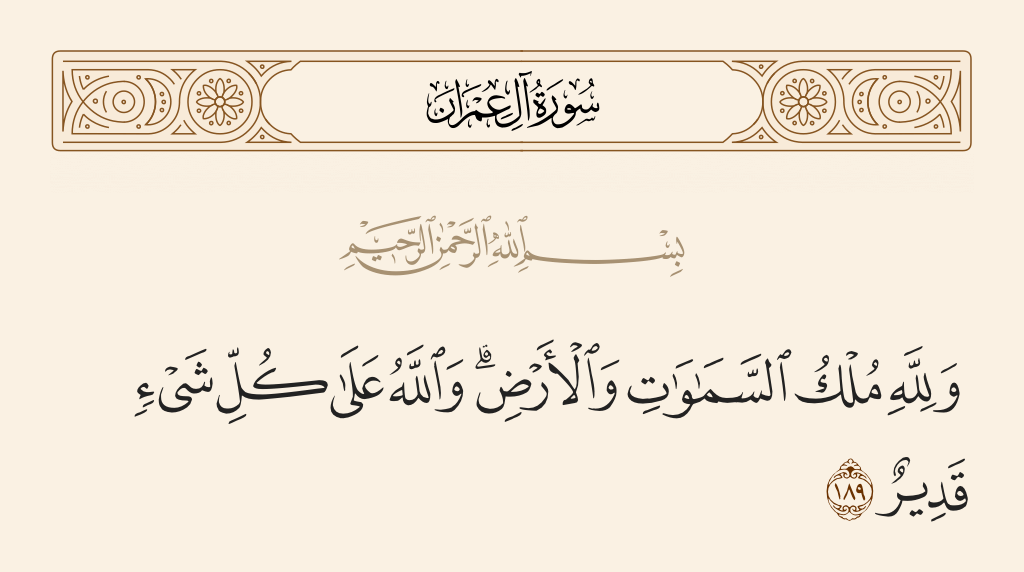 سُورَةُ آلِ عِمْرَانَ
بِسْمِ ٱللَّهِ ٱلرَّحْمَٰنِ ٱلرَّحِيمِ
وَلِلَّهِ مُلْكُ ٱلسَّمَـٰوَٰتِ وَٱلْأَرْضِ ۗ وَٱللَّهُ عَلَىٰ كُلِّ شَىْءٍ
قَدِيرٌ ١٨٩